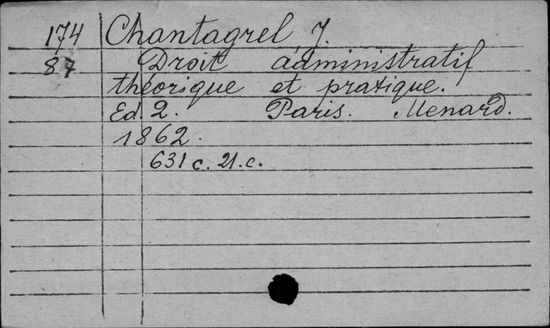 174 Chantagrel, J.
87 Droit administratif
théorique et pratique.
Ed. 2. Paris. Menard.
1862.
631 c. 21.c.